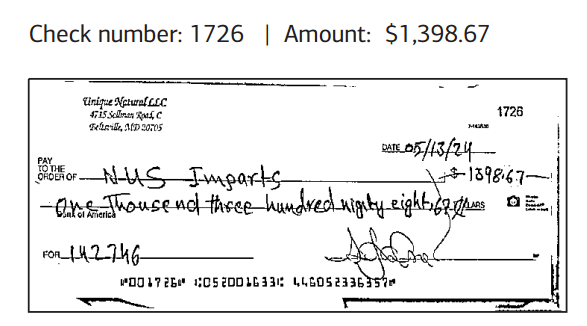 Check number: 1726 | Amount: $1,398.67
Unique Natural LLC
4735 Sellman Road, C
Beltsville, MD 20705
1726
DATE 05/13/24
PAY TO THE ORDER OF N-US Imparts $ 1398.67
One Thousend three hundred nighty eight, 67 DOLLARS
Bank of America
FOR 142746
⑈001726⑈ ⑆052001633⑆ 446052336357⑈